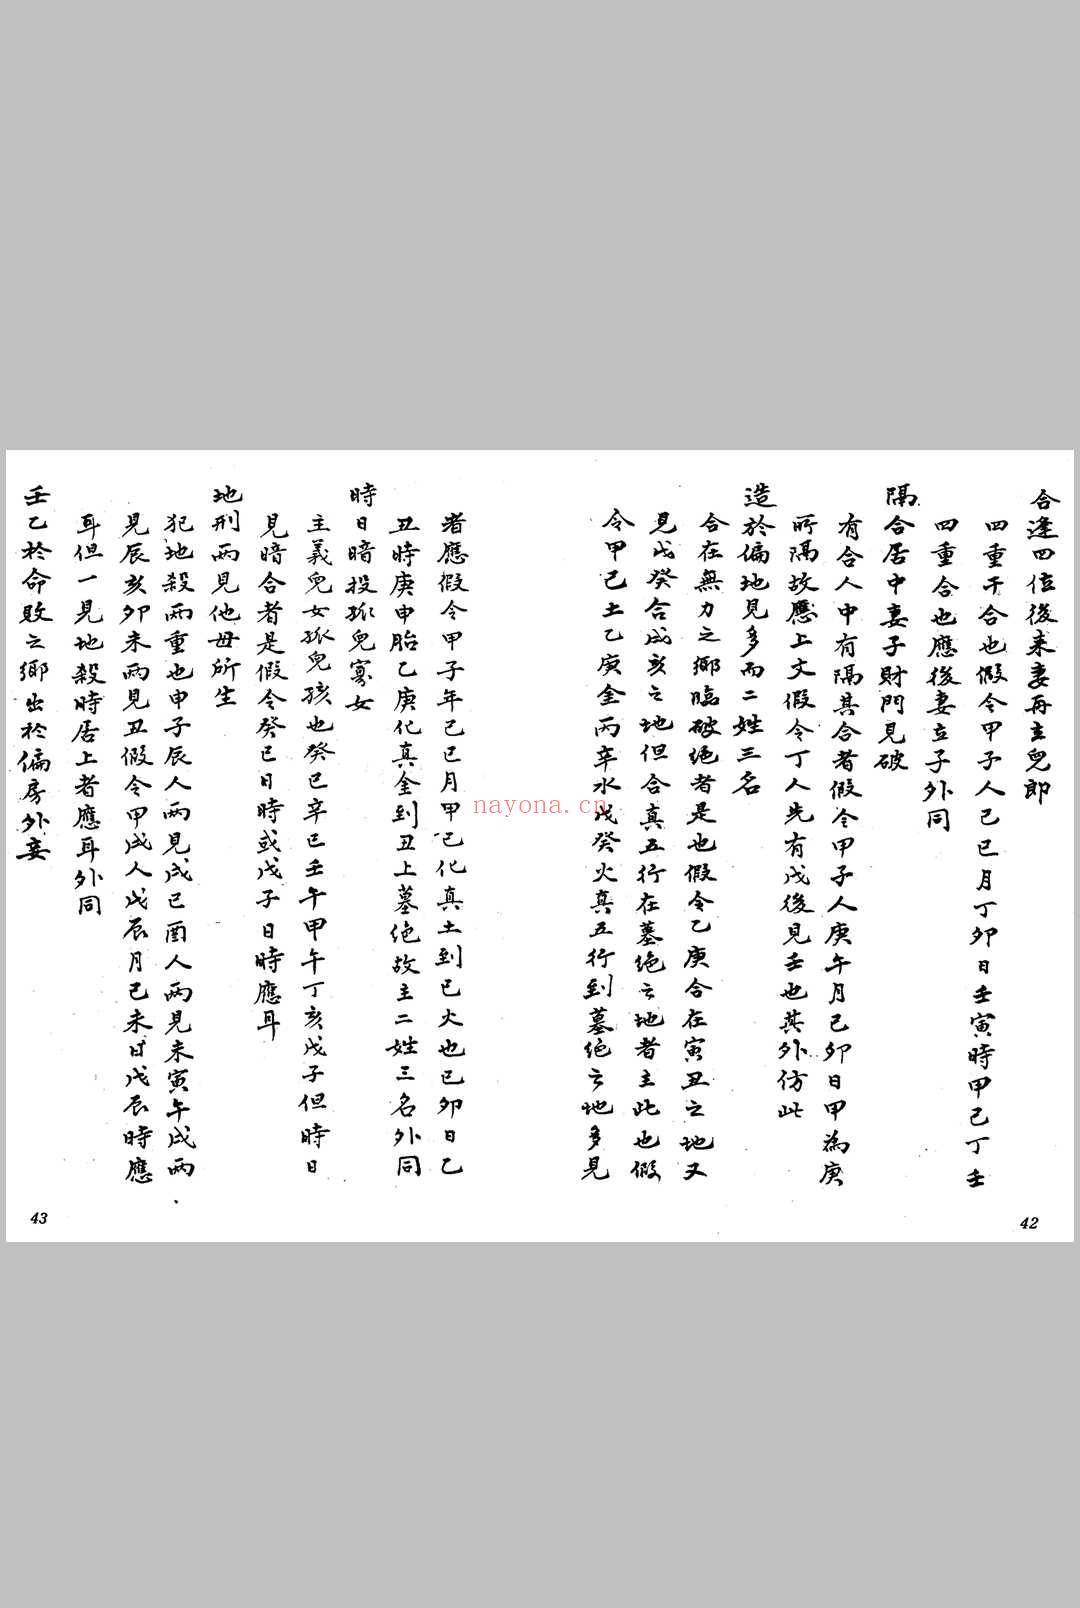 合逢四位後来妻再主兒郎
四重干合也假令甲子人己巳月丁卯日壬寅時甲己丁壬
四重合也應後妻立子外同
隔合居中妻子財門見破
有合人中有隔其合者假令甲子人庚午月己卯日甲為庚
所隔故應上文假令丁人先有戊後見壬也其外仿此
造於偏地見多而二姓三名
合在無力之鄉臨破絕者是也假令乙庚合在寅丑之地又
見戊癸合戌亥之地但合真五行在墓絕之地者主此也假
令甲己土乙庚金丙辛水戊癸火真五行到墓絕之地多見
者應假令甲子年己巳月甲己化真土到巳火也己卯日乙
丑時庚申胎乙庚化真金到丑上墓絕故主二姓三名外同
時日暗投孤兒寡女
主義兒女孤兒孩也癸巳辛巳壬午甲午丁亥戊子但時日
見暗合者是假令癸巳日時或戊子日時應耳
地刑兩見他母所生
犯地殺兩重也申子辰人兩見戌巳酉人兩見未寅午戌兩
見辰亥卯未兩見丑假令甲戌人戊辰月己未日戊辰時應
耳但一見地殺時居上者應耳外同
壬乙於命敗之鄉出於偏房外妾
43
42
nayona.cn